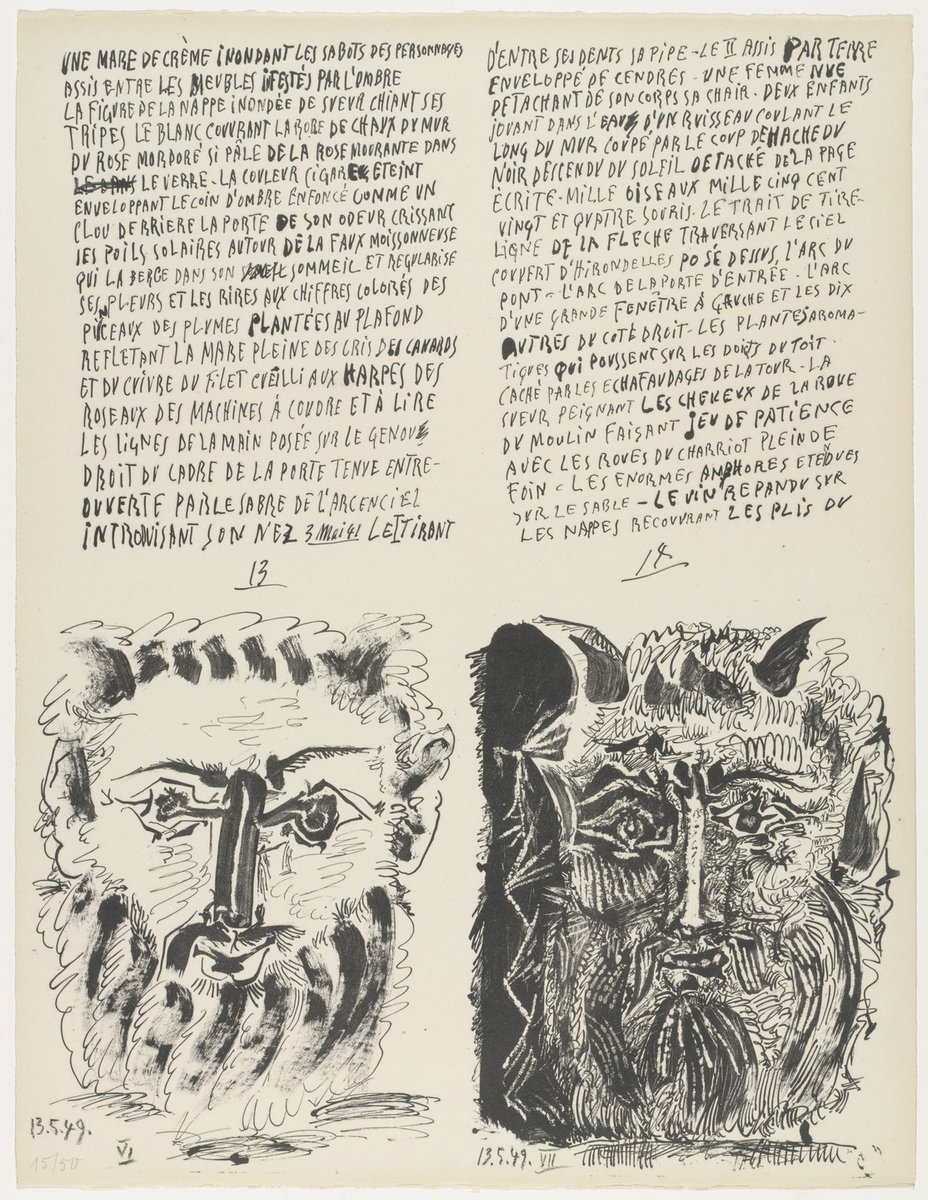 UNE MARE DE CRÈME INONDANT LES SABOTS DES PERSONNAGES
ASSIS ENTRE LES MEUBLES IFESTÉS PAR L'OMBRE
LA FIGURE DE LA NAPPE INONDÉE DE SUEUR CHIANT SES
TRIPES LE BLANC COUVRANT LA ROBE DE CHAUX DU MUR
DU ROSE MORDORÉ SI PÂLE DE LA ROSE MOURANTE DANS
LE VERRE - LA COULEUR CIGARE ETEINT
ENVELOPPANT LE COIN D'OMBRE ENFONCÉ COMME UN
CLOU DERRIERE LA PORTE DE SON ODEUR CRISSANT
SES POILS SOLAIRES AUTOUR DE LA FAUX MOISSONNEUSE
QUI LA BERCE DANS SON SOMMEIL ET REGULARISE
SES PLEURS ET LES RIRES AUX CHIFFRES COLORÉS DES
PUCEAUX DES PLUMES PLANTÉES AU PLAFOND
REFLETANT LA MARE PLEINE DES CRIS DES CANARDS
ET DU CUIVRE DU FILET CUEILLI AUX HARPES DES
ROSEAUX DES MACHINES À COUDRE ET À LIRE
LES LIGNES DE LA MAIN POSÉE SUR LE GENOUX
DROIT DU CADRE DE LA PORTE TENUE ENTRE-
OUVERTE PAR LE SABRE DE L'ARC EN CIEL
INTRODUISANT SON NEZ 3 Mai 41 LE I TIRANT
13
D'ENTRE SES DENTS SA PIPE - LE II ASSIS PAR TERRE
ENVELOPPÉ DE CENDRES - UNE FEMME NUE
DETACHANT DE SON CORPS SA CHAIR - DEUX ENFANTS
JOUANT DANS L'EAU D'UN RUISSEAU COULANT LE
LONG DU MUR COUPÉ PAR LE COUP DE HACHE DU
NOIR DESCENDU DU SOLEIL DETACHÉ DE LA PAGE
ÉCRITE - MILLE OISEAUX MILLE CINQ CENT
VINGT ET QUATRE SOURIS. LE TRAIT DE TIRE-
LIGNE DE LA FLECHE TRAVERSANT LE CIEL
COUVERT D'HIRONDELLES POSÉ DESSUS, L'ARC DU
PONT - L'ARC DE LA PORTE D'ENTRÉE - L'ARC
D'UNE GRANDE FENÊTRE À GAUCHE ET LES DIX
AUTRES DU COTÉ DROIT - LES PLANTES AROMA-
TIQUES QUI POUSSENT SUR LES DOIGTS DU TOIT
CACHÉ PAR LES ECHAFAUDAGES DE LA TOUR - LA
SUEUR PEIGNANT LES CHEVEUX DE LA ROUE
DU MOULIN FAISANT JEU DE PATIENCE
AVEC LES ROUES DU CHARRIOT PLEIN DE
FOIN - LES ENORMES AMPHORES ETENDUES
SUR LE SABLE - LE VIN REPANDU SUR
LES NAPPES RECOUVRANT LES PLIS DU
14
13.5.49.
VI
15/50
13.5.49. VII